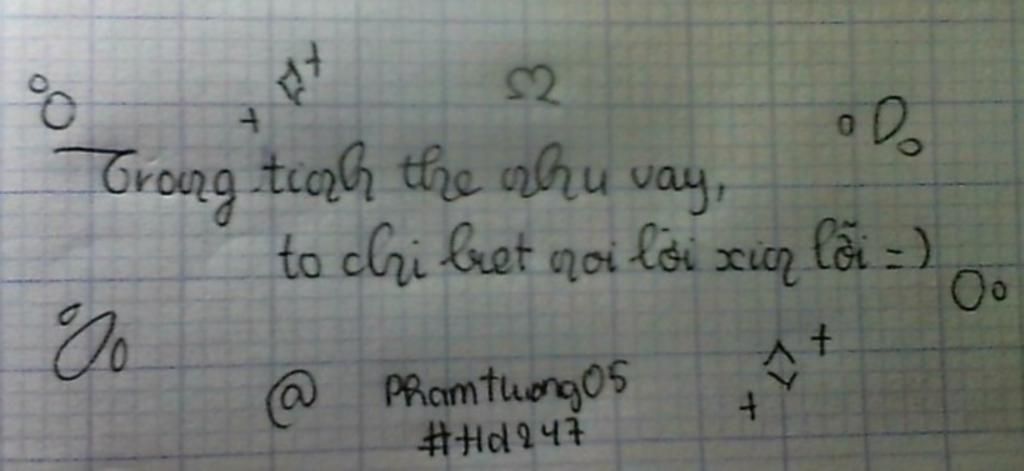 Trong tinh the nhu vay,
to chi biet noi lời xin lỗi =)
@ Phamtuong05
#Hd247